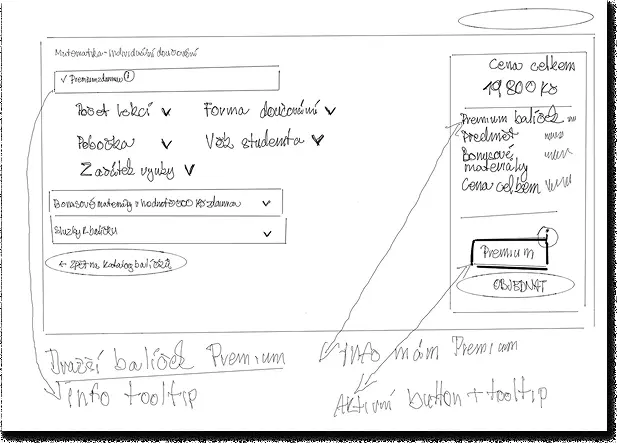 Matematika - individuální doučování
✓ Premium zdarma i
Počet lekcí ∨ Forma doučování ∨
Pobočka ∨ Věk studenta ∨
Začátek výuky ∨
Bonusové materiály v hodnotě 5000 Kč zdarma ∨
Služby k balíčku ∨
← Zpět na katalog balíčků
Cena celkem
19 800 Kč
Premium balíček
Předmět
Bonusové
materiály
Cena celkem
i
Premium
OBJEDNAT
Dražší balíček Premium
info tooltip
Info mám Premium
Aktivní button + tooltip